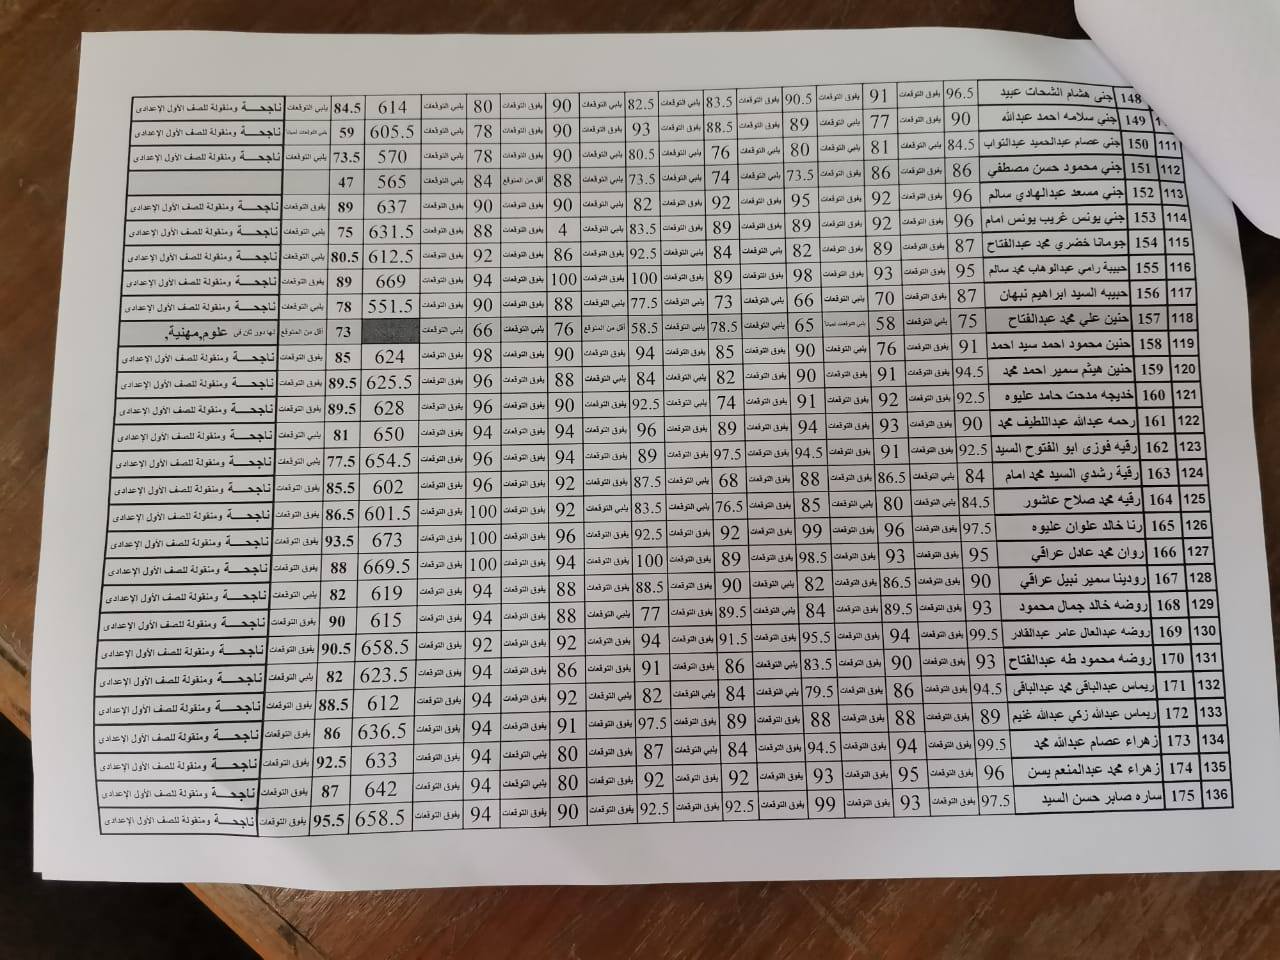 148 جنى هشام الشحات عبيد 96.5 يفوق التوقعات 91 يفوق التوقعات 90.5 يفوق التوقعات 83.5 يلبي التوقعات 82.5 يلبي التوقعات 90 يفوق التوقعات 80 يلبي التوقعات 614 84.5 يلبي التوقعات ناجحة ومنقولة للصف الأول الإعدادى
149 جني سلامه احمد عبدالله 90 يفوق التوقعات 77 يلبي التوقعات 89 يفوق التوقعات 88.5 يفوق التوقعات 93 يفوق التوقعات 90 يفوق التوقعات 78 يلبي التوقعات 605.5 59 ناجحة ومنقولة للصف الأول الإعدادى
111 150 جني عصام عبدالحميد عبدالتواب 84.5 يلبي التوقعات 81 يلبي التوقعات 80 يلبي التوقعات 76 يلبي التوقعات 80.5 يلبي التوقعات 90 يفوق التوقعات 78 يلبي التوقعات 570 73.5 يلبي التوقعات ناجحة ومنقولة للصف الأول الإعدادى
112 151 جني محمود حسن مصطفي 86 يفوق التوقعات 86 يفوق التوقعات 73.5 يلبي التوقعات 74 يلبي التوقعات 73.5 يلبي التوقعات 88 أقل من المتوقع 84 يلبي التوقعات 565 47
113 152 جني مسعد عبدالهادي سالم 96 يفوق التوقعات 92 يفوق التوقعات 95 يفوق التوقعات 92 يفوق التوقعات 82 يلبي التوقعات 90 يفوق التوقعات 90 يفوق التوقعات 637 89 يفوق التوقعات ناجحة ومنقولة للصف الأول الإعدادى
114 153 جني يونس غريب يونس امام 96 يفوق التوقعات 92 يفوق التوقعات 89 يفوق التوقعات 89 يفوق التوقعات 83.5 يلبي التوقعات 4 يفوق التوقعات 88 يفوق التوقعات 631.5 75 يلبي التوقعات ناجحة ومنقولة للصف الأول الإعدادى
115 154 جومانا خضري محمد عبدالفتاح 87 يفوق التوقعات 89 يفوق التوقعات 82 يلبي التوقعات 84 يلبي التوقعات 92.5 يفوق التوقعات 86 يفوق التوقعات 92 يفوق التوقعات 612.5 80.5 يلبي التوقعات ناجحة ومنقولة للصف الأول الإعدادى
116 155 حبيبة رامي عبدالوهاب محمد سالم 95 يفوق التوقعات 93 يفوق التوقعات 98 يفوق التوقعات 89 يفوق التوقعات 100 يفوق التوقعات 100 يفوق التوقعات 94 يفوق التوقعات 669 89 يفوق التوقعات ناجحة ومنقولة للصف الأول الإعدادى
117 156 حبيبه السيد ابراهيم نبهان 87 يفوق التوقعات 70 يلبي التوقعات 66 يلبي التوقعات 73 يلبي التوقعات 77.5 يلبي التوقعات 88 يفوق التوقعات 90 يفوق التوقعات 551.5 78 يلبي التوقعات ناجحة ومنقولة للصف الأول الإعدادى
118 157 حنين علي محمد عبدالفتاح 75 يلبي التوقعات 58 65 يلبي التوقعات 78.5 يلبي التوقعات 58.5 أقل من المتوقع 76 يلبي التوقعات 66 يلبي التوقعات 73 أقل من المتوقع لها دور ثان فى علوم,مهنية,
119 158 حنين محمود احمد سيد احمد 91 يفوق التوقعات 76 يلبي التوقعات 90 يفوق التوقعات 85 يفوق التوقعات 94 يفوق التوقعات 90 يفوق التوقعات 98 يفوق التوقعات 624 85 يفوق التوقعات ناجحة ومنقولة للصف الأول الإعدادى
120 159 حنين هيثم سمير احمد محمد 94.5 يفوق التوقعات 91 يفوق التوقعات 90 يفوق التوقعات 82 يلبي التوقعات 84 يلبي التوقعات 88 يفوق التوقعات 96 يفوق التوقعات 625.5 89.5 يفوق التوقعات ناجحة ومنقولة للصف الأول الإعدادى
121 160 خديجه مدحت حامد عليوه 92.5 يفوق التوقعات 92 يفوق التوقعات 91 يفوق التوقعات 74 يلبي التوقعات 92.5 يفوق التوقعات 90 يفوق التوقعات 96 يفوق التوقعات 628 89.5 يفوق التوقعات ناجحة ومنقولة للصف الأول الإعدادى
122 161 رحمه عبدالله عبداللطيف محمد 90 يفوق التوقعات 93 يفوق التوقعات 94 يفوق التوقعات 89 يفوق التوقعات 96 يفوق التوقعات 94 يفوق التوقعات 94 يفوق التوقعات 650 81 يلبي التوقعات ناجحة ومنقولة للصف الأول الإعدادى
123 162 رقيه فوزى ابو الفتوح السيد 92.5 يفوق التوقعات 91 يفوق التوقعات 94.5 يفوق التوقعات 97.5 يفوق التوقعات 89 يفوق التوقعات 94 يفوق التوقعات 96 يفوق التوقعات 654.5 77.5 يلبي التوقعات ناجحة ومنقولة للصف الأول الإعدادى
124 163 رقية رشدي السيد محمد امام 84 يلبي التوقعات 86.5 يفوق التوقعات 88 يفوق التوقعات 68 يلبي التوقعات 87.5 يفوق التوقعات 92 يفوق التوقعات 96 يفوق التوقعات 602 85.5 يفوق التوقعات ناجحة ومنقولة للصف الأول الإعدادى
125 164 رقيه محمد صلاح عاشور 84.5 يلبي التوقعات 80 يلبي التوقعات 85 يفوق التوقعات 76.5 يلبي التوقعات 83.5 يلبي التوقعات 92 يفوق التوقعات 100 يفوق التوقعات 601.5 86.5 يفوق التوقعات ناجحة ومنقولة للصف الأول الإعدادى
126 165 رنا خالد علوان عليوه 97.5 يفوق التوقعات 96 يفوق التوقعات 99 يفوق التوقعات 92 يفوق التوقعات 92.5 يفوق التوقعات 96 يفوق التوقعات 100 يفوق التوقعات 673 93.5 يفوق التوقعات ناجحة ومنقولة للصف الأول الإعدادى
127 166 روان محمد عادل عراقي 95 يفوق التوقعات 93 يفوق التوقعات 98.5 يفوق التوقعات 89 يفوق التوقعات 100 يفوق التوقعات 94 يفوق التوقعات 100 يفوق التوقعات 669.5 88 يفوق التوقعات ناجحة ومنقولة للصف الأول الإعدادى
128 167 رودينا سمير نبيل عراقي 90 يفوق التوقعات 86.5 يفوق التوقعات 82 يلبي التوقعات 90 يفوق التوقعات 88.5 يفوق التوقعات 88 يفوق التوقعات 94 يفوق التوقعات 619 82 يلبي التوقعات ناجحة ومنقولة للصف الأول الإعدادى
129 168 روضه خالد جمال محمود 93 يفوق التوقعات 89.5 يفوق التوقعات 84 يلبي التوقعات 89.5 يفوق التوقعات 77 يلبي التوقعات 88 يفوق التوقعات 94 يفوق التوقعات 615 90 يفوق التوقعات ناجحة ومنقولة للصف الأول الإعدادى
130 169 روضه عبدالعال عامر عبدالقادر 99.5 يفوق التوقعات 94 يفوق التوقعات 95.5 يفوق التوقعات 91.5 يفوق التوقعات 94 يفوق التوقعات 92 يفوق التوقعات 92 يفوق التوقعات 658.5 90.5 يفوق التوقعات ناجحة ومنقولة للصف الأول الإعدادى
131 170 روضه محمود طه عبدالفتاح 93 يفوق التوقعات 90 يفوق التوقعات 83.5 يلبي التوقعات 86 يفوق التوقعات 91 يفوق التوقعات 86 يفوق التوقعات 94 يفوق التوقعات 623.5 82 يلبي التوقعات ناجحة ومنقولة للصف الأول الإعدادى
132 171 ريماس عبدالباقى محمد عبدالباقى 94.5 يفوق التوقعات 86 يفوق التوقعات 79.5 يلبي التوقعات 84 يلبي التوقعات 82 يلبي التوقعات 92 يفوق التوقعات 94 يفوق التوقعات 612 88.5 يفوق التوقعات ناجحة ومنقولة للصف الأول الإعدادى
133 172 ريماس عبدالله زكي عبدالله غنيم 89 يفوق التوقعات 88 يفوق التوقعات 88 يفوق التوقعات 89 يفوق التوقعات 97.5 يفوق التوقعات 91 يفوق التوقعات 94 يفوق التوقعات 636.5 86 يفوق التوقعات ناجحة ومنقولة للصف الأول الإعدادى
134 173 زهراء عصام عبدالله محمد 99.5 يفوق التوقعات 94 يفوق التوقعات 94.5 يفوق التوقعات 84 يلبي التوقعات 87 يفوق التوقعات 80 يلبي التوقعات 94 يفوق التوقعات 633 92.5 يفوق التوقعات ناجحة ومنقولة للصف الأول الإعدادى
135 174 زهراء محمد عبدالمنعم يسن 96 يفوق التوقعات 95 يفوق التوقعات 93 يفوق التوقعات 92 يفوق التوقعات 92 يفوق التوقعات 80 يلبي التوقعات 94 يفوق التوقعات 642 87 يفوق التوقعات ناجحة ومنقولة للصف الأول الإعدادى
136 175 ساره صابر حسن السيد 97.5 يفوق التوقعات 93 يفوق التوقعات 99 يفوق التوقعات 92.5 يفوق التوقعات 92.5 يفوق التوقعات 90 يفوق التوقعات 94 يفوق التوقعات 658.5 95.5 يفوق التوقعات ناجحة ومنقولة للصف الأول الإعدادى